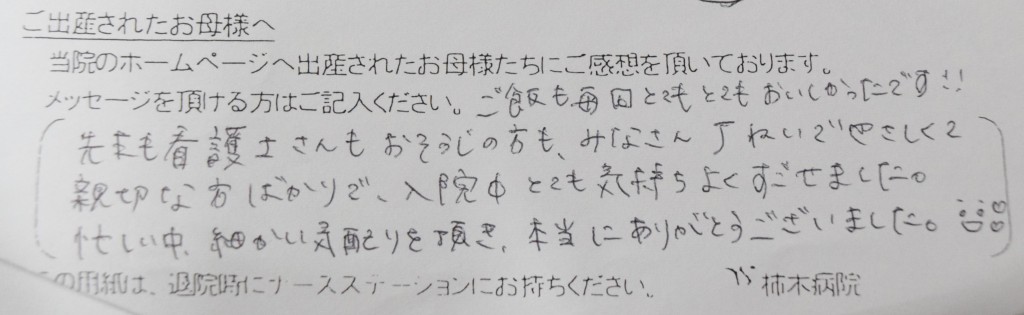 ご出産されたお母様へ
当院のホームページへ出産されたお母様たちにご感想を頂いております。
メッセージを頂ける方はご記入ください。ご飯も毎回とてもとてもおいしかったです!!
先生も看護士さんもおそうじの方も、みなさん丁ねいでやさしくて
親切な方ばかりで、入院中とても気持ちよくすごせました。
忙しい中、細かい気配りを頂き、本当にありがとうございました。
の用紙は、退院時にナースステーションにお持ちください。 柿木病院